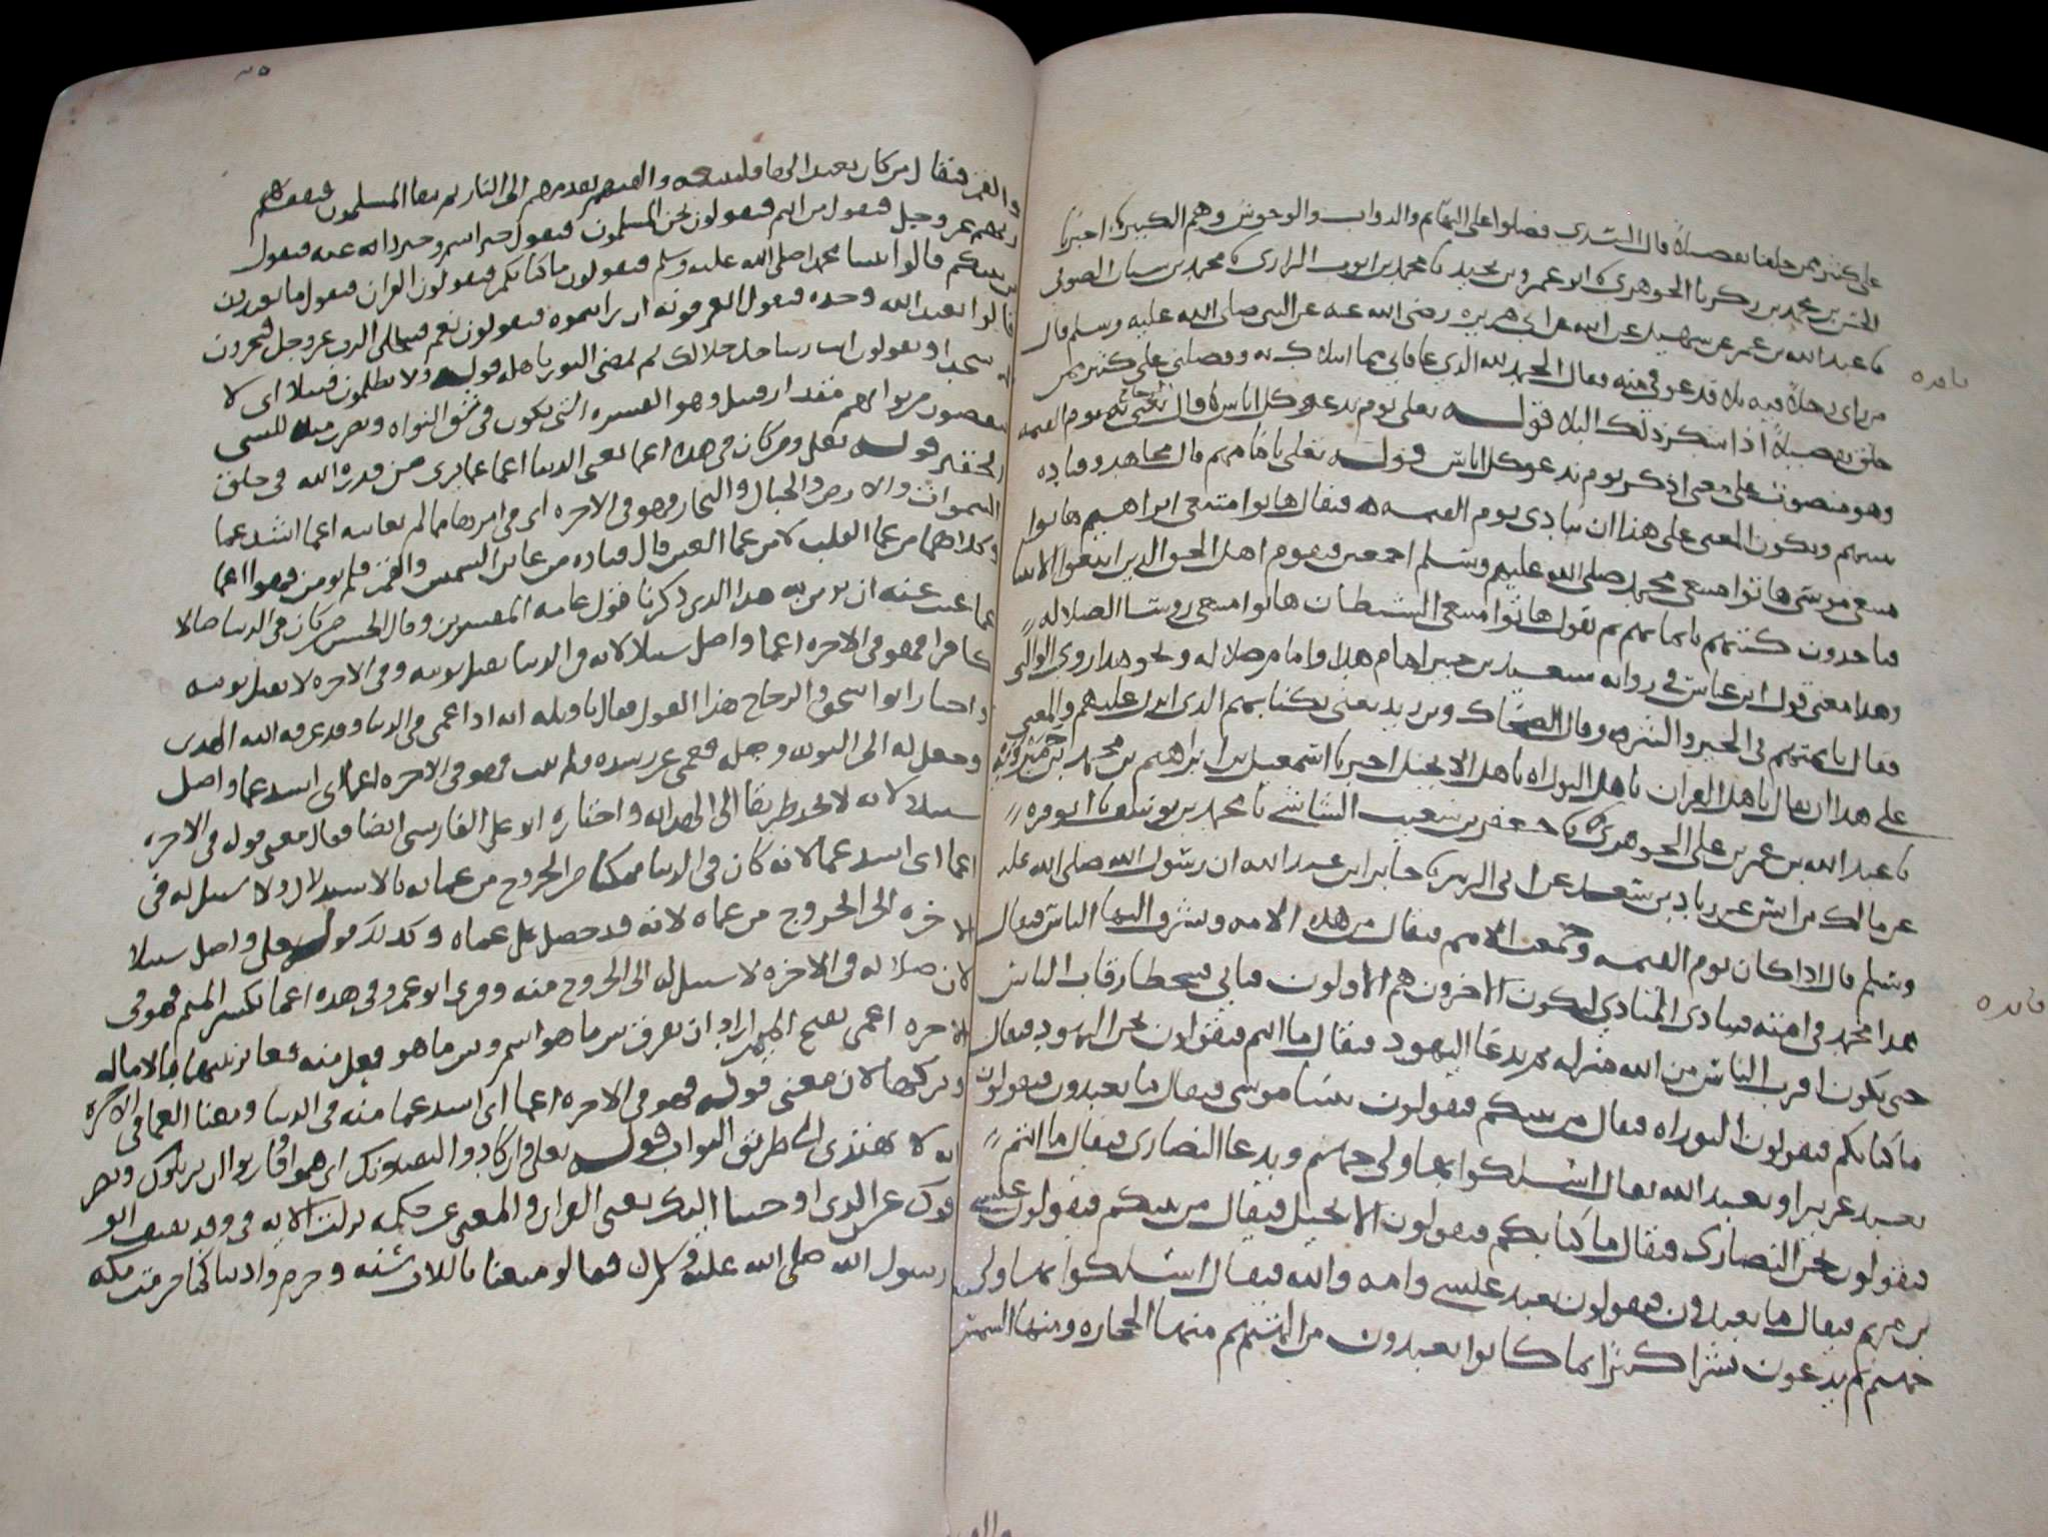 على كثير ممن خلقنا تفضيلا قال السدي فضلوا على البهائم والدواب والوحوش وهم الكثير اخبرنا
الحسن بن محمد بن زكريا الجوهري ابو عمرو بن نجيد نا محمد بن ايوب الرازي نا محمد بن سنان العوقي
نا عبد الله بن عمر عن سهيل عن ابيه عن ابي هريره رضي الله عنه عن النبي صلى الله عليه وسلم قال
من راى رجلا فيه بلاء فقال الحمد لله الذي عافاني مما ابتلاك به وفضلني على كثير ممن
خلق تفضيلا اذا شكر ذلك البلاء قوله تعلى يوم ندعو كل اناس قال الزجاج يعني يوم القيمه
وهو منصوب على معنى اذكر يوم ندعو كل اناس قوله تعلى بامامهم قال مجاهد وقتاده
بنبيهم ويكون المعنى على هذا ان ينادى يوم القيمه فيقال هاتوا متبعي ابراهيم هاتوا
متبعي موسى هاتوا متبعي محمد صلى الله عليهم وسلم اجمعين فيقوم اهل الحق الذين اتبعوا الانبيا
فياخذون كتبهم بايمانهم ثم يقول هاتوا متبعي الشيطان هاتوا متبعي روسا الضلاله
وهذا معنى قول ابن عباس في روايه سعيد بن جبير امام هدا وامام ضلاله ونحو هذا روى الوالبي
فقال بايمتهم في الخير والشر وقال الضحاك وبن زيد يعني بكتابهم الذي انزل عليهم والمعنى
على هذا ان يقال يا هل القران يا هل التوراه يا هل الانجيل اخبرنا اسمعيل بن ابراهيم بن محمد بن
نا عبد الله بن عمر بن علي الجوهري نا جعفر بن شعيب الشاشي نا محمد بن يوسف نا ابو قره
عن مالك بن انس عن زياد بن سعد عن ابي الزبير نا جابر ابن عبد الله ان رسول الله صلى الله عليه
وسلم قال اذا كان يوم القيمه وجمعت الامم فيقال من هذه الامه ويشرف اليها الناس فيقال
هذا محمد في امته فينادي المنادي ليكون الاخرون هم الاولون فياتي فيتخطا رقاب الناس
حتى يكون اقرب الناس من الله منزله ثم يدعا اليهود فيقال ما انتم فيقولون نحن اليهود فيقال
ما كتابكم فيقولون التوراه فيقال من نبيكم فيقولون نبينا موسى فيقال ما تعبدون فيقولون
نعبد عزيرا ونعبد الله فيقال اسلكوا بهما ولى جهنم ويدعا النصارى فيقال ما انتم
فيقولون نحن النصارى فيقال ما كتابكم فيقولون الانجيل فيقال من نبيكم فيقولون عيسى
بن مريم فيقال ما تعبدون فيقولون نعبد عيسى وامه والله فيقال اسلكوا بهما ولى
جهنم ثم يدعون بشرا كثيرا بما كانوا يعبدون من الهتهم منها الحجاره ومنها الشمس
والقمر فيقال من كان يعبد الها فليتبعه والقيهم بقدمهم الى النار ثم يبقا المسلمون فيقف بهم
ربهم عز وجل فيقول من انتم فيقولون نحن المسلمون فيقول خير اسم وخير داعيه فيقول
من نبيكم قالوا نبينا محمد صلى الله عليه وسلم فيقولون ما كتابكم فيقولون القران فيقول ما تعبدون
قالوا نعبد الله وحده فيقول اتعرفونه ان رايتموه فيقولون نعم فيتجلى الرب عز وجل فيخرون
له سجدا ويقولون انت ربنا جل جلالك ثم يمضي النور باهله قوله ولا يظلمون فتيلا اى لا
ينقصون من ثوابهم مقدار فتيل وهو القشره التي تكون في شق النواه
الحقير قوله تعلى ومن كان في هذه اعما يعني الدنيا اعما عما يرى من قدره الله في خلق
السموات والارض والجبال والبحار فهو في الاخره اى في امرها مما لم يعاينه اعما اشد عما
وكلاهما من عما القلب لا من عما العين قال قتاده من عاين الشمس والقمر فلم يومن فهو اعما
عما غيب عنه ان يومن به هذا الذي ذكرنا قول عامه المفسرين وقال الحسن من كان في الدنيا ضالا
كافرا فهو في الاخره اعما واضل سبيلا لانه في الدنيا تقبل توبته وفي الاخره لا تقبل توبته
واختار ابو اسحق الزجاج هذا القول فقال تاويله انه اذا عمي في الدنيا وقد عرفه الله الهدى
وجعل له الى التوبه وصله فعمي عن رشده ولم يتب فهو في الاخره اعما اى اشد عما واضل
سبيلا لانه لا يجد طريقا الى الهدايه واختاره ابو علي الفارسي ايضا فقال معنى قوله في الاخره
اعما اى اشد عما لانه كان في الدنيا ممكنا من الخروج من عماه بالاستدلال ولا سبيل له في
الاخره الى الخروج من عماه لانه قد حصل على عماه وكذلك قوله تعلى واضل سبيلا
لان ضلاله في الاخره لا سبيل له الى الخروج منه وقرى ابو عمرو في هذه اعما بكسر الميم فهو في
الاخره اعمى بفتح الميم اراد ان يفرق بين ما هو اسم وبين ما هو افعل منه فغاير بينهما بالاماله
وتركها لان معنى قوله فهو في الاخره اعما اى اشد عما منه في الدنيا ومعنا العما في الاخره
انه لا يهتدي الى طريق الثواب قوله تعلى وان كادوا ليفتنونك اى هموا وقاربوا ان يزيلوك
عن الذي اوحينا اليك يعني القران والمعنى عن حكمه نزلت الايه في وفد ثقيف اتو
رسول الله صلى الله عليه وسلم فقالو متعنا باللات سنه وحرم وادينا كما حرمت مكه
فايده
فايده